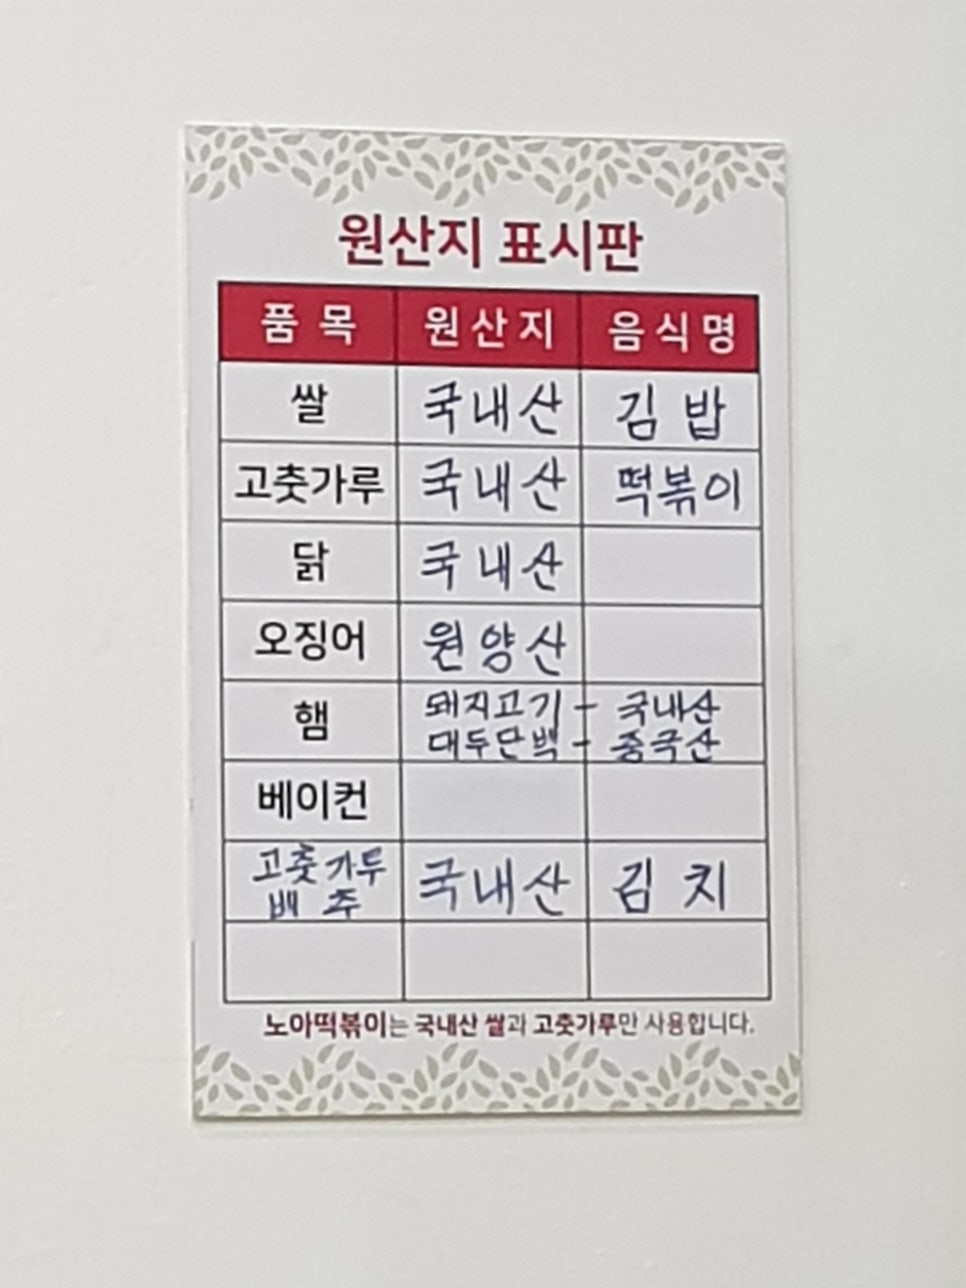 원산지 표시판
품 목 원산지 음식명
쌀 국내산 김 밥
고춧가루 국내산 떡볶이
닭 국내산
오징어 원양산
햄 돼지고기 - 국내산
대두단백 - 중국산
베이컨
고춧가루
배 추 국내산 김 치
노아떡볶이는 국내산 쌀과 고춧가루만 사용합니다.